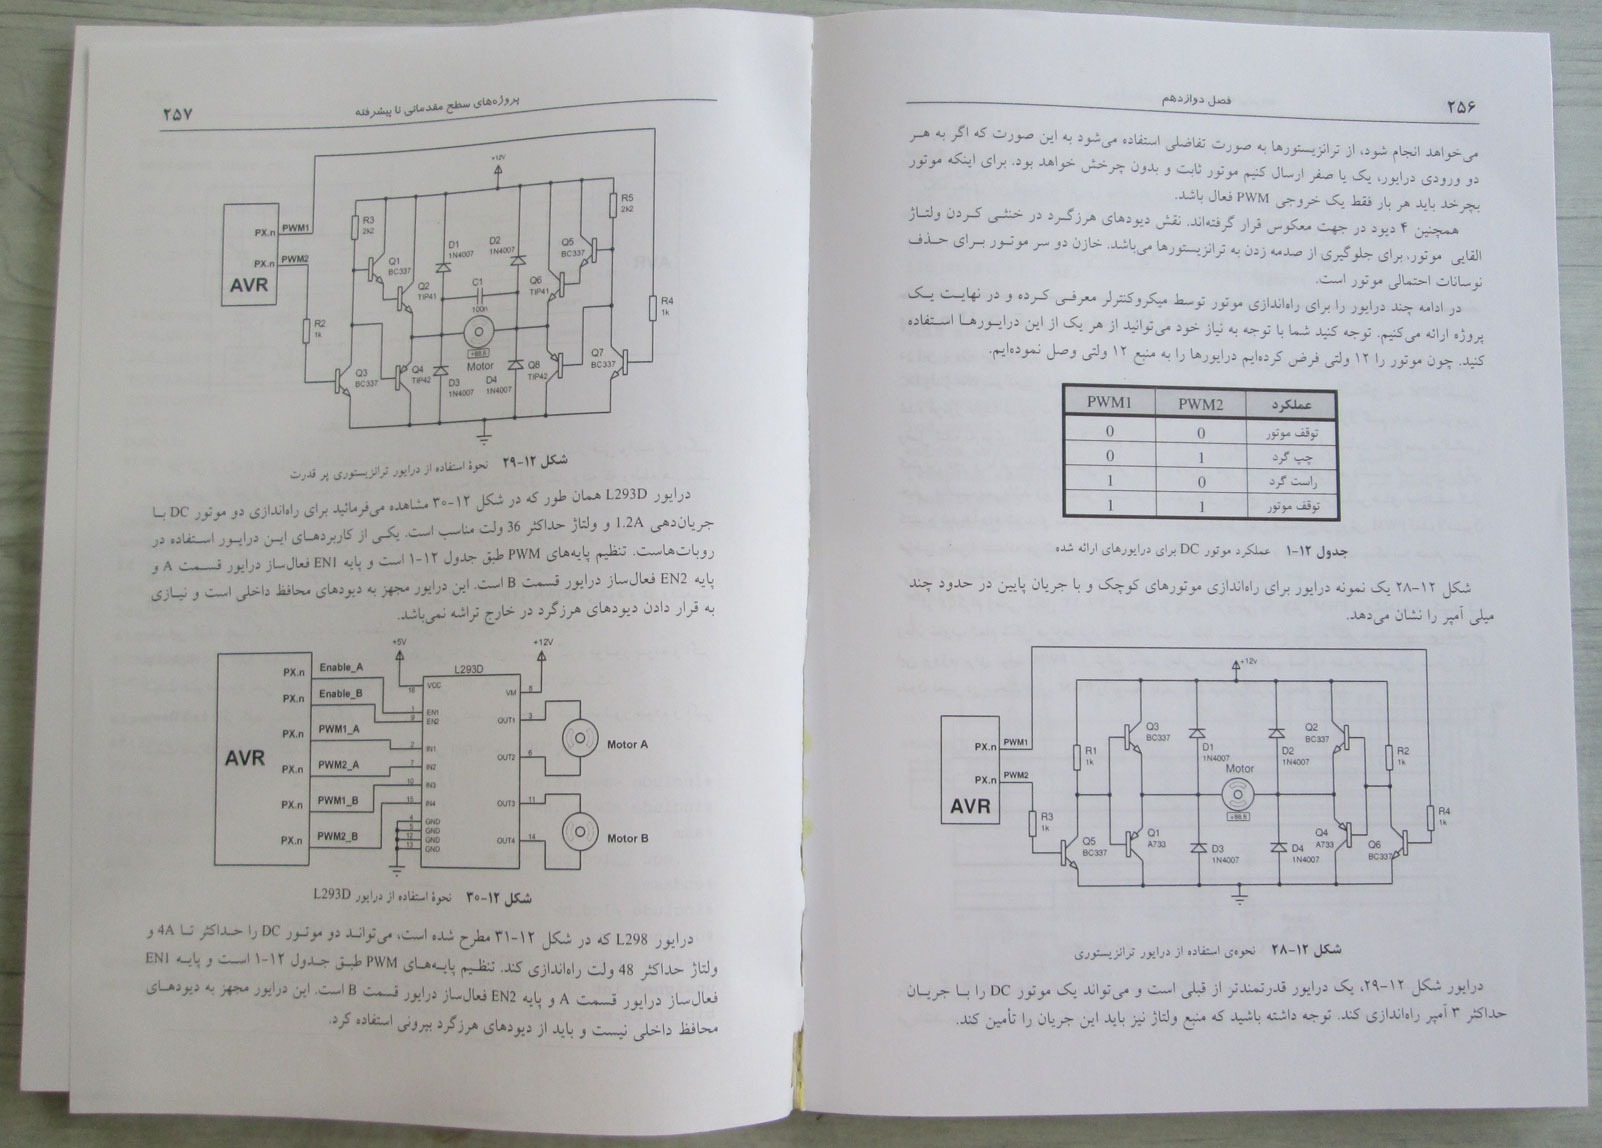 ۲۵۶
فصل دوازدهم
می‌خواهد انجام شود، از ترانزیستورها به صورت تفاضلی استفاده می‌شود به این صورت که اگر به هر
دو ورودی درایور، یک یا صفر ارسال کنیم موتور ثابت و بدون چرخش خواهد بود. برای اینکه موتور
بچرخد باید هر بار فقط یک خروجی PWM فعال باشد.
همچنین ۴ دیود در جهت معکوس قرار گرفته‌اند. نقش دیودهای هرزگرد در خنثی کردن ولتاژ
القایی موتور، برای جلوگیری از صدمه زدن به ترانزیستورها می‌باشد. خازن دو سر موتور برای حذف
نوسانات احتمالی موتور است.
در ادامه چند درایور را برای راه‌اندازی موتور توسط میکروکنترلر معرفی کرده و در نهایت یک
پروژه ارائه می‌کنیم. توجه کنید شما با توجه به نیاز خود می‌توانید از هر یک از این درایورها استفاده
کنید. چون موتور را ۱۲ ولتی فرض کرده‌ایم درایورها را به منبع ۱۲ ولتی وصل نموده‌ایم.
عملکرد PWM2 PWM1
توقف موتور 0 0
چپ گرد 1 0
راست گرد 0 1
توقف موتور 1 1
جدول ۱۲-۱ عملکرد موتور DC برای درایورهای ارائه شده
شکل ۱۲-۲۸ یک نمونه درایور برای راه‌اندازی موتورهای کوچک و با جریان پایین در حدود چند
میلی آمپر را نشان می‌دهد.
+12v
PX.n PWM1
PX.n PWM2
AVR
R1
1k
Q3
BC337
D1
1N4007
D2
1N4007
Q2
BC337
R2
1k
Motor
+88.8
R3
1k
Q5
BC337
Q1
A733
D3
1N4007
D4
1N4007
Q4
A733
Q6
BC337
R4
1k
شکل ۱۲-۲۸ نحوه‌ی استفاده از درایور ترانزیستوری
درایور شکل ۱۲-۲۹، یک درایور قدرتمندتر از قبلی است و می‌تواند یک موتور DC را با جریان
حداکثر ۳ آمپر راه‌اندازی کند. توجه داشته باشید که منبع ولتاژ نیز باید این جریان را تأمین کند.
پروژه‌های سطح مقدماتی تا پیشرفته
۲۵۷
+12V
PX.n PWM1
PX.n PWM2
AVR
R3
2k2
Q1
BC337
Q2
TIP41
D1
1N4007
D2
1N4007
C1
100n
Q6
TIP41
Q5
BC337
R5
2k2
R4
1k
R2
1k
+88.8
Motor
Q3
BC337
Q4
TIP42
D3
1N4007
D4
1N4007
Q8
TIP42
Q7
BC337
شکل ۱۲-۲۹ نحوهٔ استفاده از درایور ترانزیستوری پر قدرت
درایور L293D همان طور که در شکل ۱۲-۳۰ مشاهده می‌فرمائید برای راه‌اندازی دو موتور DC با
جریان‌دهی 1.2A و ولتاژ حداکثر 36 ولت مناسب است. یکی از کاربردهای این درایور استفاده در
روبات‌هاست. تنظیم پایه‌های PWM طبق جدول ۱۲-۱ است و پایه EN1 فعال‌ساز درایور قسمت A و
پایه EN2 فعال‌ساز درایور قسمت B است. این درایور مجهز به دیودهای محافظ داخلی است و نیازی
به قرار دادن دیودهای هرزگرد در خارج تراشه نمی‌باشد.
+5V
+12V
L293D
AVR
PX.n Enable_A
PX.n Enable_B
PX.n PWM1_A
PX.n PWM2_A
PX.n PWM1_B
PX.n PWM2_B
16 VCC
1 EN1
9 EN2
2 IN1
7 IN2
10 IN3
15 IN4
4 GND
5 GND
12 GND
13 GND
VM 8
OUT1 3
OUT2 6
OUT3 11
OUT4 14
Motor A
Motor B
شکل ۱۲-۳۰ نحوهٔ استفاده از درایور L293D
درایور L298 که در شکل ۱۲-۳۱ مطرح شده است، می‌تواند دو موتور DC را حداکثر تا 4A و
ولتاژ حداکثر 48 ولت راه‌اندازی کند. تنظیم پایه‌های PWM طبق جدول ۱۲-۱ است و پایه EN1
فعال‌ساز درایور قسمت A و پایه EN2 فعال‌ساز درایور قسمت B است. این درایور مجهز به دیودهای
محافظ داخلی نیست و باید از دیودهای هرزگرد بیرونی استفاده کرد.